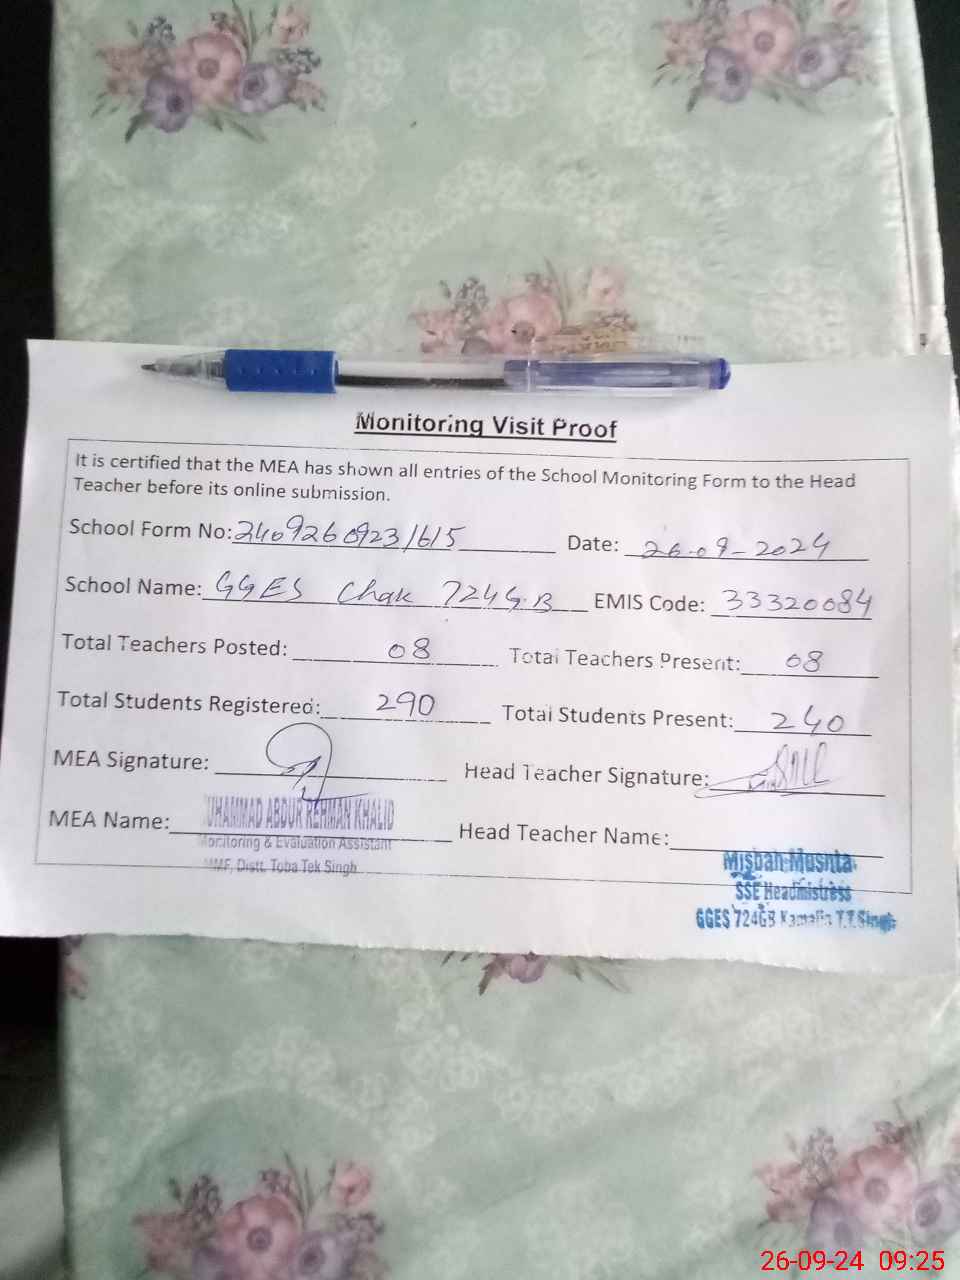 Monitoring Visit Proof
It is certified that the MEA has shown all entries of the School Monitoring Form to the Head
Teacher before its online submission.
School Form No: 24092609231615 Date: 26-09-2024
School Name: GGES Chak 724 G.B EMIS Code: 33320084
Total Teachers Posted: 08 Total Teachers Present: 08
Total Students Registered: 290 Total Students Present: 240
MEA Signature: Head Teacher Signature:
MEA Name: Head Teacher Name:
MUHAMMAD ABDUR REHMAN KHALID
Monitoring & Evaluation Assistant
Distt. Toba Tek Singh
Misbah
SSE Headmistress
GGES 724GB Kamalia T.T.Singh
26-09-24 09:25